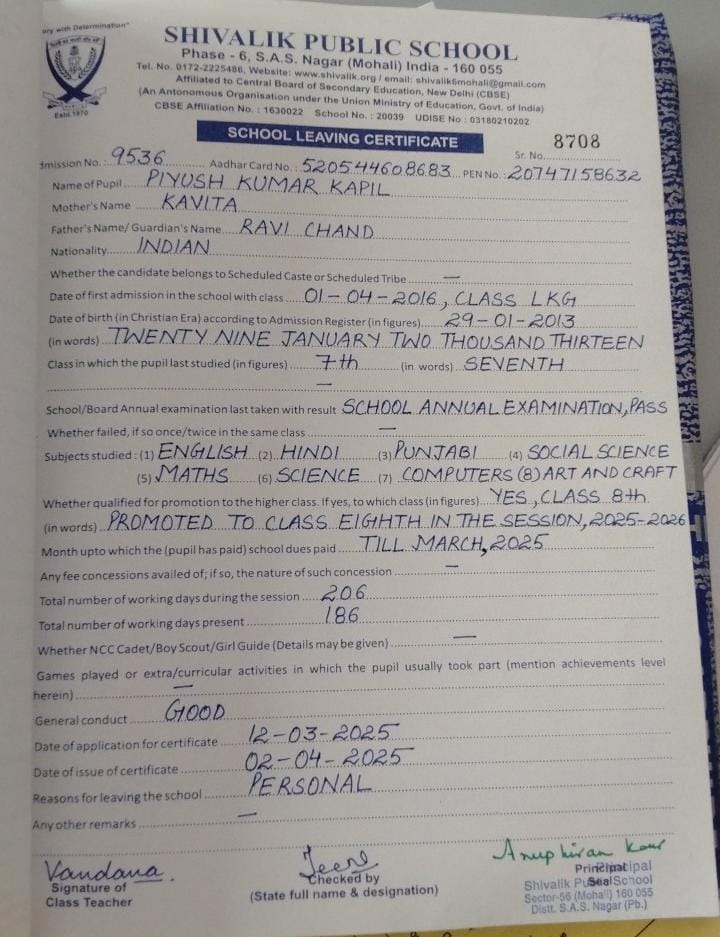 ory with Determination"
Estd.1970
SHIVALIK PUBLIC SCHOOL
Phase - 6, S.A.S. Nagar (Mohali) India - 160 055
Tel. No. 0172-2225486, Website: www.shivalik.org / email: shivalik6mohali@gmail.com
Affiliated to Central Board of Secondary Education, New Delhi (CBSE)
(An Antonomous Organisation under the Union Ministry of Education, Govt. of India)
CBSE Affiliation No. : 1630022 School No. : 20039 UDISE No : 03180210202
SCHOOL LEAVING CERTIFICATE Sr. No. 8708
dmission No. : 9536 Aadhar Card No. : 520544608683 PEN No. : 20747158632
Name of Pupil PIYUSH KUMAR KAPIL
Mother's Name KAVITA
Father's Name/ Guardian's Name RAVI CHAND
Nationality INDIAN
Whether the candidate belongs to Scheduled Caste or Scheduled Tribe —
Date of first admission in the school with class 01-04-2016, CLASS LKG
Date of birth (in Christian Era) according to Admission Register (in figures) 29-01-2013
(in words) TWENTY NINE JANUARY TWO THOUSAND THIRTEEN
Class in which the pupil last studied (in figures) 7th (in words) SEVENTH
—
School/Board Annual examination last taken with result SCHOOL ANNUAL EXAMINATION, PASS
Whether failed, if so once/twice in the same class —
Subjects studied : (1) ENGLISH (2) HINDI (3) PUNJABI (4) SOCIAL SCIENCE
(5) MATHS (6) SCIENCE (7) COMPUTERS (8) ART AND CRAFT
Whether qualified for promotion to the higher class. If yes, to which class (in figures) YES, CLASS 8th
(in words) PROMOTED TO CLASS EIGHTH IN THE SESSION, 2025-2026
Month upto which the (pupil has paid) school dues paid TILL MARCH, 2025
Any fee concessions availed of; if so, the nature of such concession —
Total number of working days during the session 206
Total number of working days present 186
Whether NCC Cadet/Boy Scout/Girl Guide (Details may be given) —
Games played or extra/curricular activities in which the pupil usually took part (mention achievements level
herein) —
General conduct GOOD
Date of application for certificate 12-03-2025
Date of issue of certificate 02-04-2025
Reasons for leaving the school PERSONAL
Any other remarks —
Vandana.
Signature of
Class Teacher
Checked by
(State full name & designation)
Anupkiran Kaur
Principal
Seal
Principal
Shivalik Public School
Sector-56 (Mohali) 160 055
Distt. S.A.S. Nagar (Pb.)